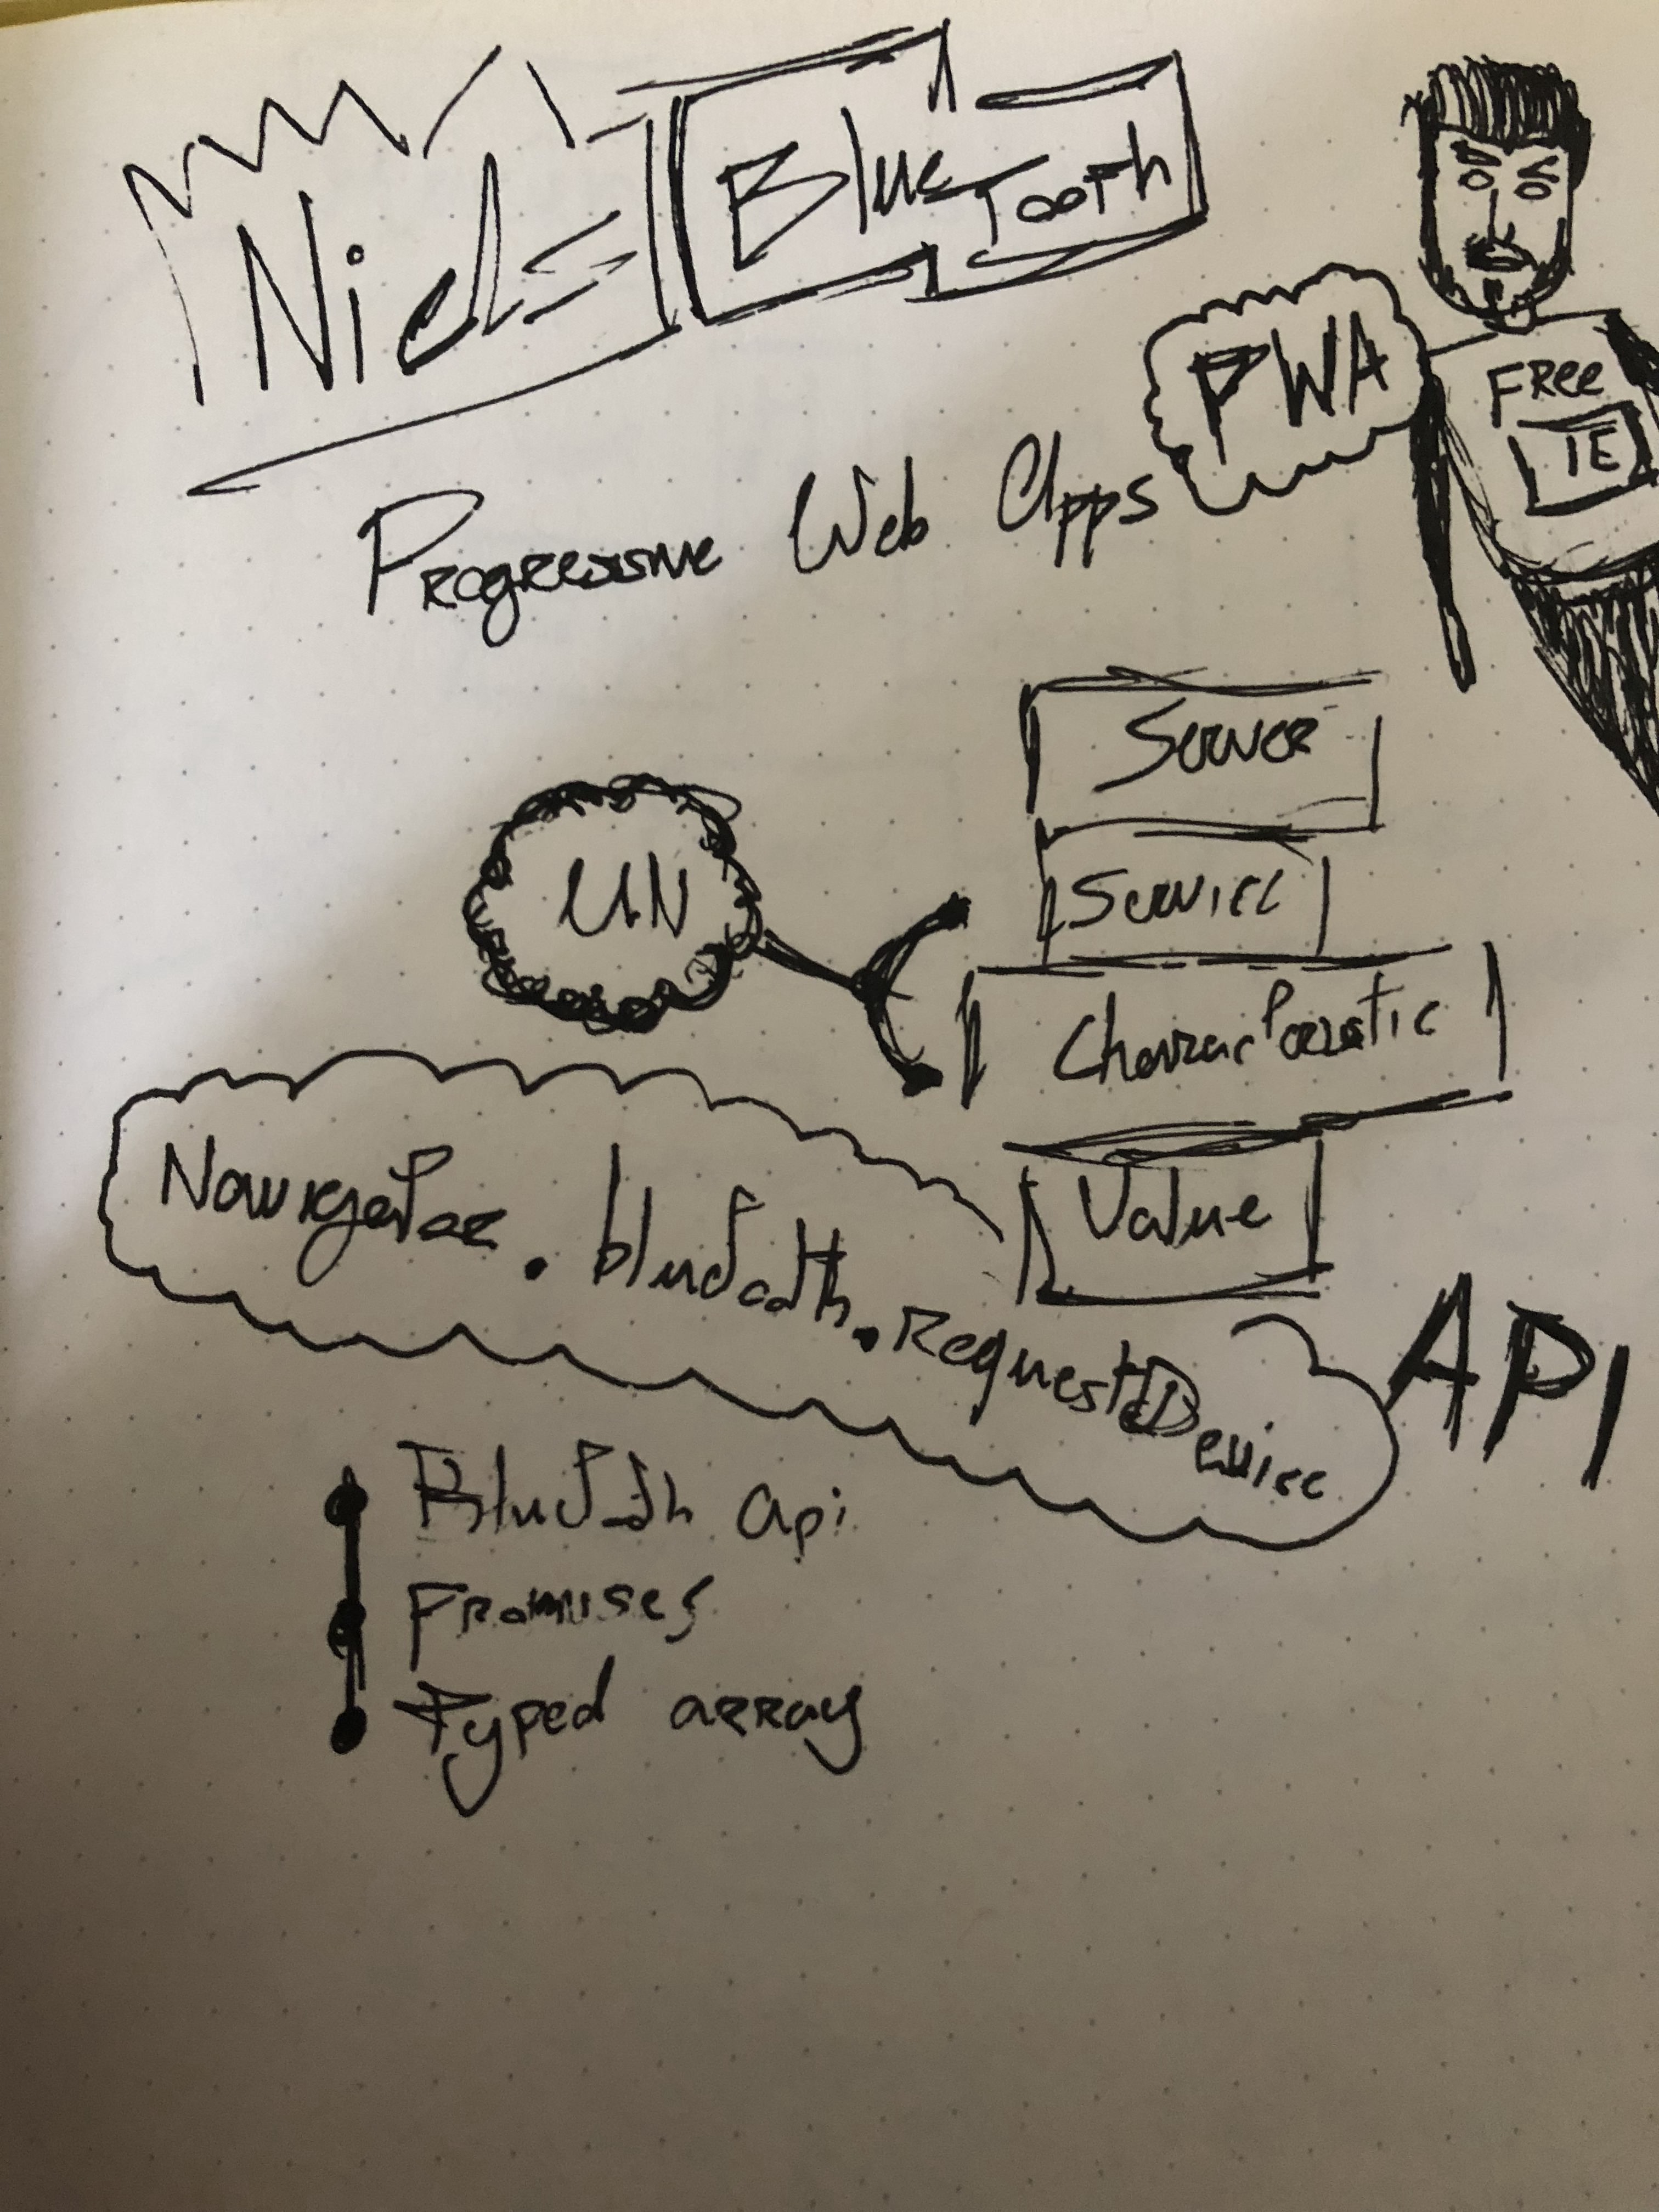 Niels BlueTooth
PWA
FREE
IE
Progressive Web Apps
Server
UN
Service
Characteristic
Value
Navigator.bluetooth.RequestDevice
API
Bluetooth api
Promises
Typed array